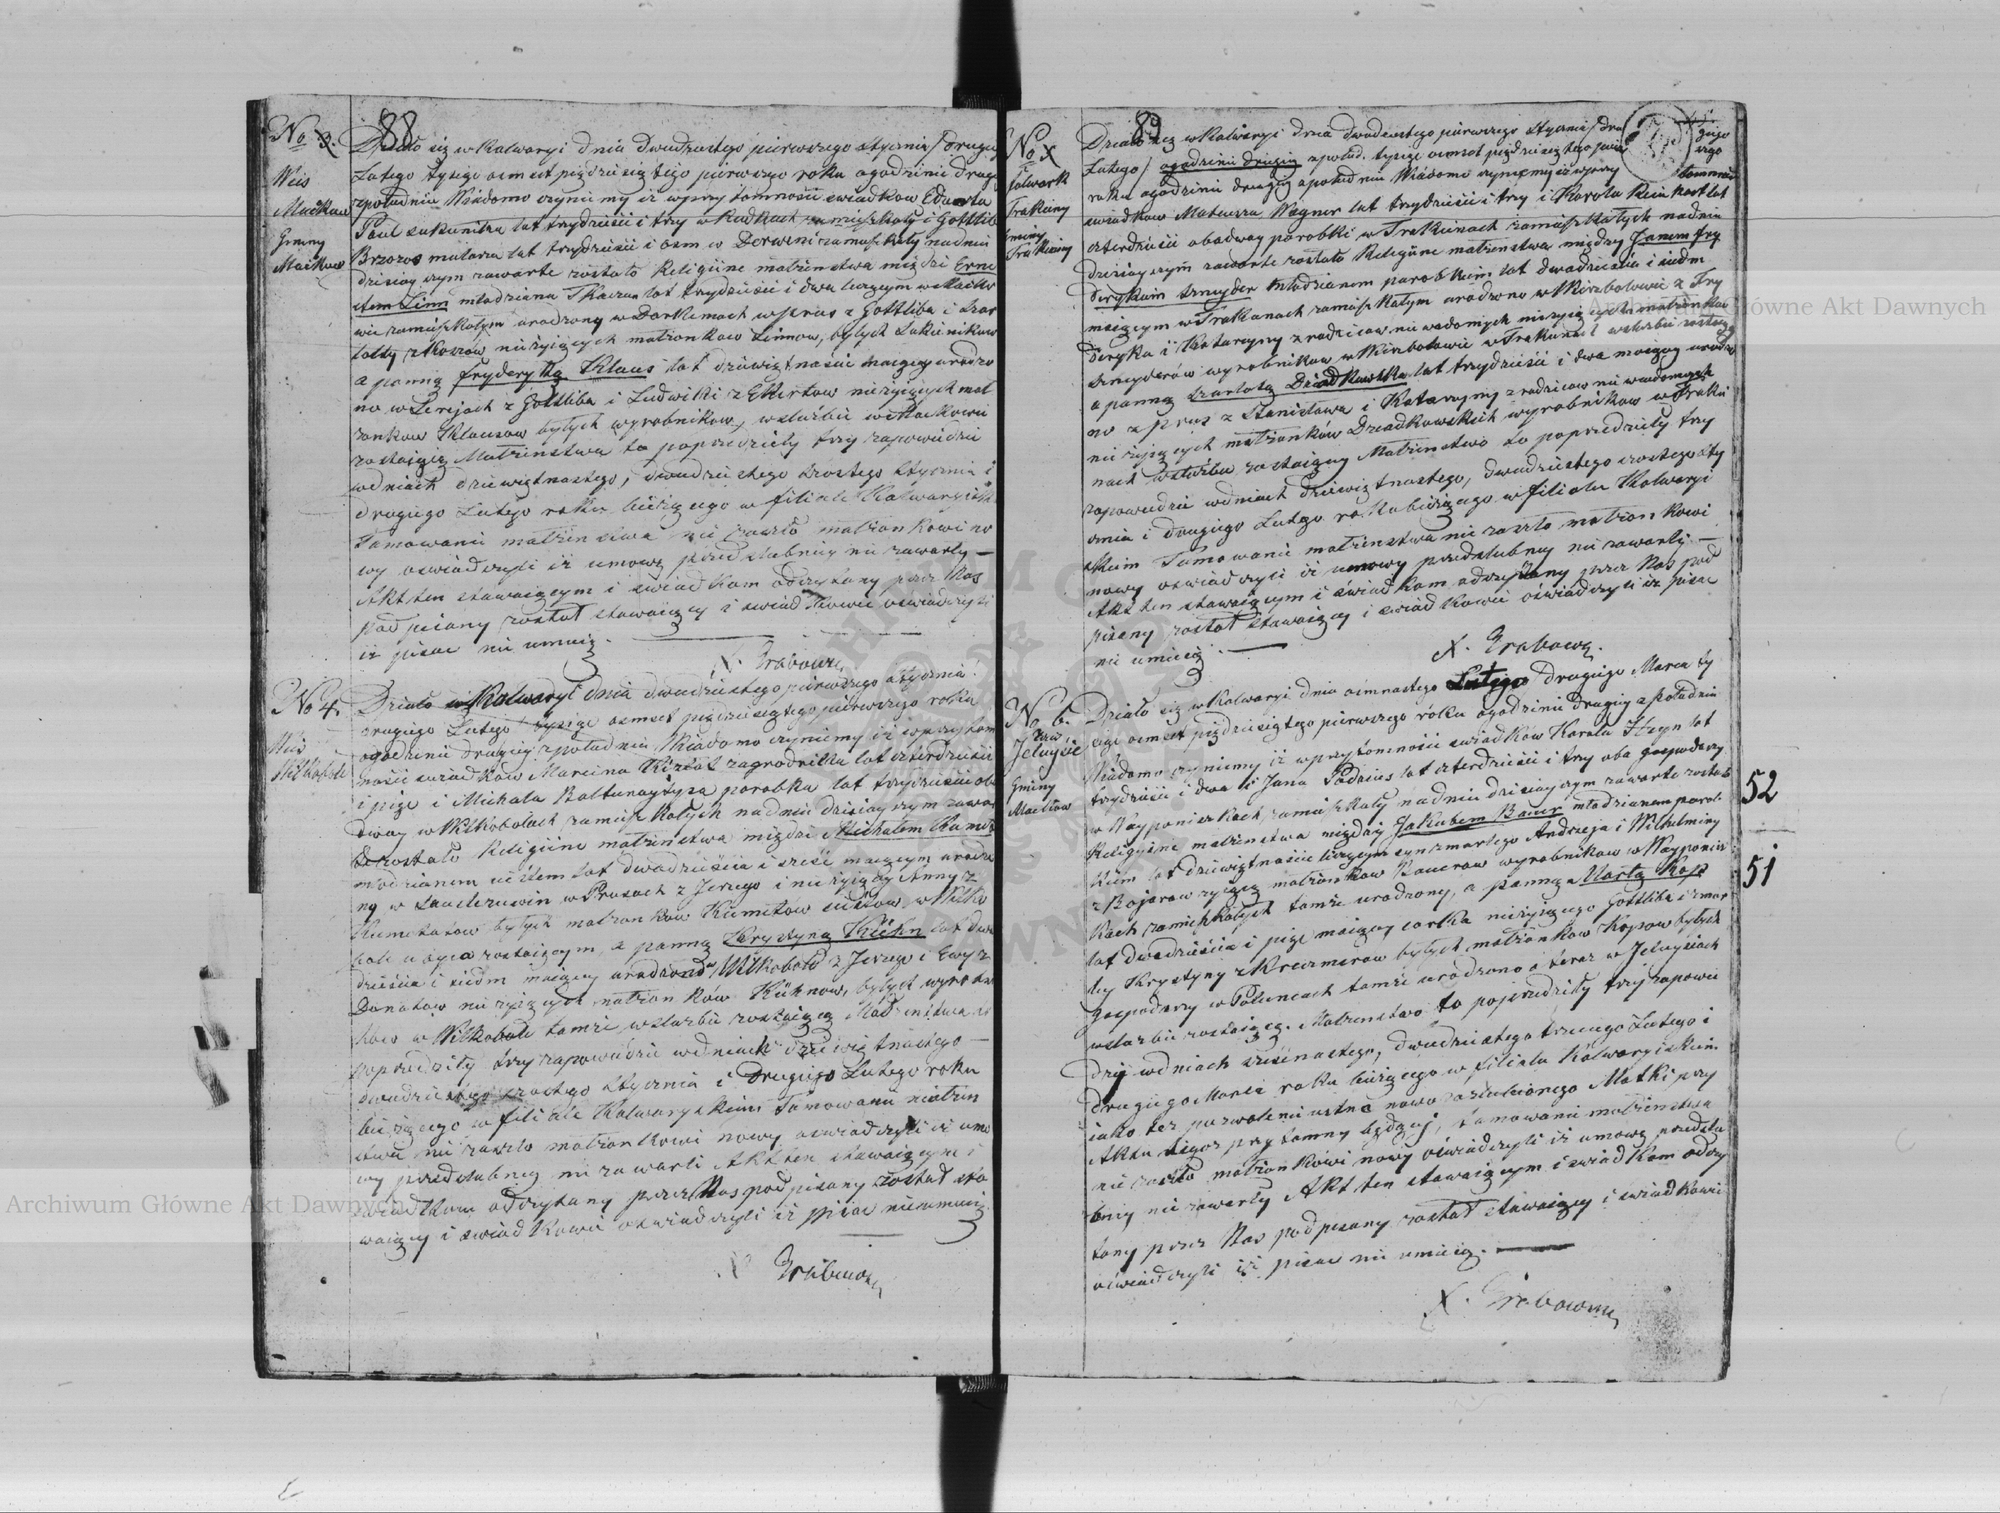 88
No 3.
Wieś
Maćkow
Gminy
Maćkow
Działo się w Kalwaryi dnia dwudziestego pierwszego Stycznia / drugiego
Lutego tysiąc ośmset pięćdziesiątego pierwszego roku o godzinie drugi
z południa Wiadomo czyniemy iż w przytomności świadków Eduarda
Paul sukunika lat trzydzieści i trzy w Radkach zamieszkały i Gottlib
Brzozos mularza lat trzydzieści i osm w zamieszkały na dniu
dzisiayszym zawarte zostało Religijne małżeństwa między Erne
stem Linn młodziana Tkacza lat trzydzieści i dwa liczącym w Maćko
wie zamieszkałym urodzony w Darkemach w Prus z Gottliba i Szar
lotty z nieżyiących małżonkow Linnow, byłych Sukiennikow
a panną Fryderyką Klaus lat dziewiętnaście maiącą urodzo
no w z Gottliba i Ludwiki z Ekertow nieżyiących mał
żonkow Klausow byłych wyrobnikow, w służbie w Maćkowie
zostaiącą Małżeństwo to poprzedziły trzy zapowiedzi
w dniach dziewiętnastego, dwudziestego szóstego Stycznia i
drugiego Lutego roku bieżącego w filiale Kalwaryiskim
Tamowanie małżeństwa nie zaszło małżonkowie no
wy oświadczyli iż umowę przedślubnej nie zawarły —
Akt ten stawaiącym i świadkom odczytany przez Nas
podpisany został stawaiący i świadkowie oświadczyli
iż pisać nie umieią. —
X. Grabowski
No 4.
Wieś
Wiłkobole
Działo się w Kalwaryi dnia dwudziestego pierwszego Stycznia /
drugiego Lutego / tysiąc ośmset pięćdziesiątego pierwszego roku
o godzinie drugiey z południa Wiadomo czyniemy iż w przytom
ności świadków Marcina zagrodnika lat czterdzieści
i pięć i Michała Baltunaytysa parobka lat trzydzieści oby
dway w Wiłkobolach zamieszkałych na dniu dzisiayszym zawar
te zostało Religijne małżeństwa między Michałem Kumet
młodzianem lat dwadzieścia i sześć maiącym urodzo
ny w w Prusach z Jerzego i nieżyiący Anny z
byłych małżonkow Kumetów w Wiłko
bole u oyca zostaiącym, a panną Krystyną Kühn lat dwa
dzieścia i siedm maiący urodzoną w Wiłkobole z Jerzego i Ewy z
Donatow nieżyiących małżonków Kühnow, byłych wyrobni
kow w Wiłkobole tamże w służbie zostaiącą Małżeństwa to
poprzedziły trzy zapowiedzie w dniach dziewiętnastego —
dwudziestego szostego Stycznia i Drugiego Lutego roku
bieżącego w filiale Kalwaryskim Tamowanie małżeń
stwa nie zaszło małżonkowie nowy oświadczyli iż umo
wy przedślubney nie zawarli Akt ten stawaiącym i
świadkom odczytany przez Nas podpisany został sta
waiący i świadkowie oświadczyli iż pisać nie umieią.
X Grabowski
89
No
folwark
Trakiany
Gminy
Trakiany
Działo się w Kalwaryi dnia dwudziestego pierwszego Stycznia / dru
Lutego / ogodzinie drugiey z połud. tysiąc ośmset pięćdziesiątego pierw
roku o godzinie drugiey z południa Wiadomo czyniemy iż w przy
tomności
świadkow Mateusza Wagner lat trzydzieści i trzy i Karola lat
czterdzieści obadway parobki w Trakianach zamieszkałych na dniu
dzisiayszym zawarte zostało Religijne małżeństwa między Janem Fry
derykiem Sznyder młodzianem parobkiem lat dwadzieścia i siedm
maiącym w Trakianach zamieszkałym urodzono w Wierzbołowie z Fry
deryka i Katarzyny z rodziców niewiadomych nieżyiących małżonkow
Sznyderów wyrobnikow w Wierzbołowie w Trakianach w służbie zostaiąc
a panną Szarlotą Dziadkowską lat trzydzieści i dwa maiący urodzo
no z Prus z Stanisława i Katarzyny z rodzicow nie wiadomych
nieżyiących małżonków Dziadkowskich wyrobnikow w Trakia
nach w służbie zostaiącą Małżeństwo to poprzedziły trzy
zapowiedzie w dniach dziewiętnastego, dwudziestego szostego Sty
cznia i drugiego Lutego roku bieżącego w filiale Kalwaryi
skim Tamowanie małżeństwa nie zaszło małżonkowie
nowy oświadczyli iż umowy przedślubney nie zawarli —
Akt ten stawaiącym i świadkom odczytany przez Nas pod
pisany został stawaiący i świadkowie oświadczyli iż pisać
nie umieią. —
X. Grabowski.
No 6.
Jeluyście
Gminy
Maciłow
Działo się w Kalwaryi dnia ośmnastego Lutego drugiego Marca ty
siąc ośmset pięćdziesiątego pierwszego roku o godzinie drugiey z południa
Wiadomo czyniemy iż w przytomności świadków Karola lat
trzydzieści i dwa i Jana lat czterdzieści i trzy oba gospodarzy
w Wayponiszkach zamieszkały na dniu dzisiayszym zawarte zostało
Religijne małżeństwa między Jakubem Bauer młodzianem parob
kiem lat dziewiętnaście liczącym syn zmarłego Andrzeja i Wilhelminy
z żyiącą małżonkow Bauerow wyrobnikow w Wayponisz
kach zamieszkałych tamże urodzony, a panną Martą Kops
lat dwadzieścia i pięć maiący córka nieżyiącego Gottliba i zmar
ły Krystyny z Krezmerow byłych małżonkow Kopsow byłych
gospodarzy w Poluncach tamże urodzono a teraz w Jeluyściach
w służbie zostaiącą. Małżeństwo to poprzedziły trzy zapowie
dzi w dniach szesnastego, dwudziestego trzeciego Lutego i
drugiego Marca roku bieżącego w filiale Kalwaryiskim
iako też pozwolenie ustne nowo zaślubionego Matki przy
Aktu tegoż przytomny będącej, tamowanie małżeństwa
nie zaszło małżonkowie nowy oświadczyli iż umowę przedślu
bney nie zawarły Akt ten stawaiącym i świadkom odczy
tany przez Nas podpisany został stawaiący i świadkowie
oświadczyli iż pisać nie umieią. —
X. Grabowski
52
51
Archiwum Główne Akt Dawnych
Archiwum Główne Akt Dawnych